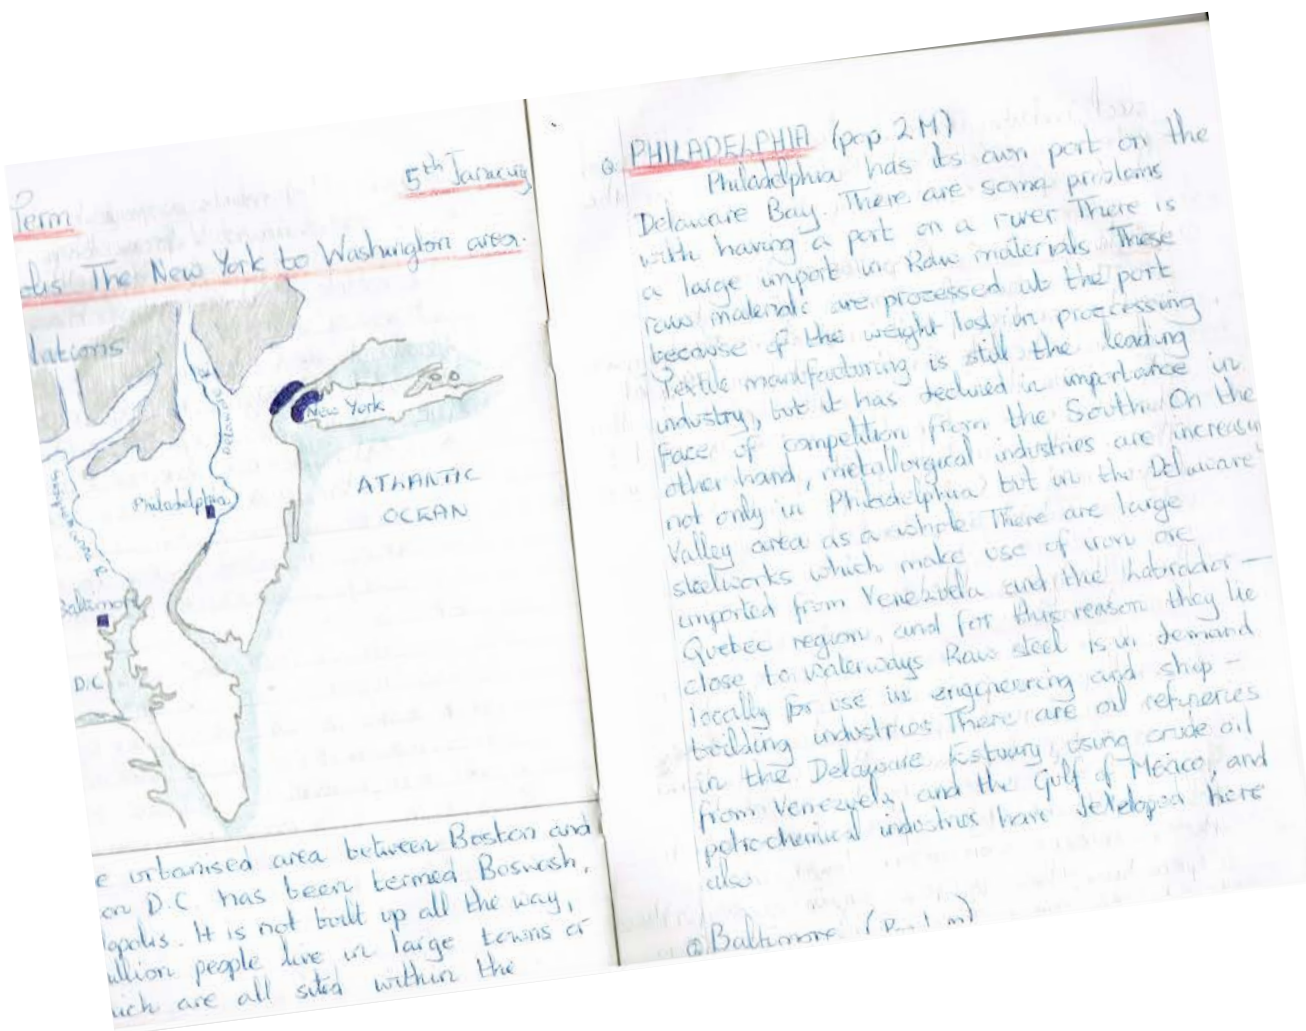 5th January
Term
olis The New York to Washington area.
lations
New York
Delaware
ATLANTIC
OCEAN
Philadelphia
Baltimore
D.C
e urbanised area between Boston and
on D.C. has been termed Boswash,
lopolis. It is not built up all the way,
illion people live in large towns or
hich are all sited within the
PHILADELPHIA (pop 2M)
Philadelphia has its own port on the
Delaware Bay. There are some problems
with having a port on a river There is
a large import in Raw materials These
raws materials are processed at the port
because of the weight lost in proccessing
Textile manufacturing is still the leading
industry, but it has declined in importance in
face of competition from the South. On the
other hand, metallurgical industries are increasin
not only in Philadelphia but in the Delaware
Valley area as a whole. There are large
steelworks which make use of iron ore
imported from Venezuela and the Labrador —
Quebec region, and for this reason they lie
close to waterways Raw steel is in demand
locally for use in engineering and ship —
building industries There are oil refineries
in the Delaware Estuary, using crude oil
from Venezuela and the Gulf of Mexico, and
petro-chemical industries have developed here
also
Baltimore (Pop 1m)